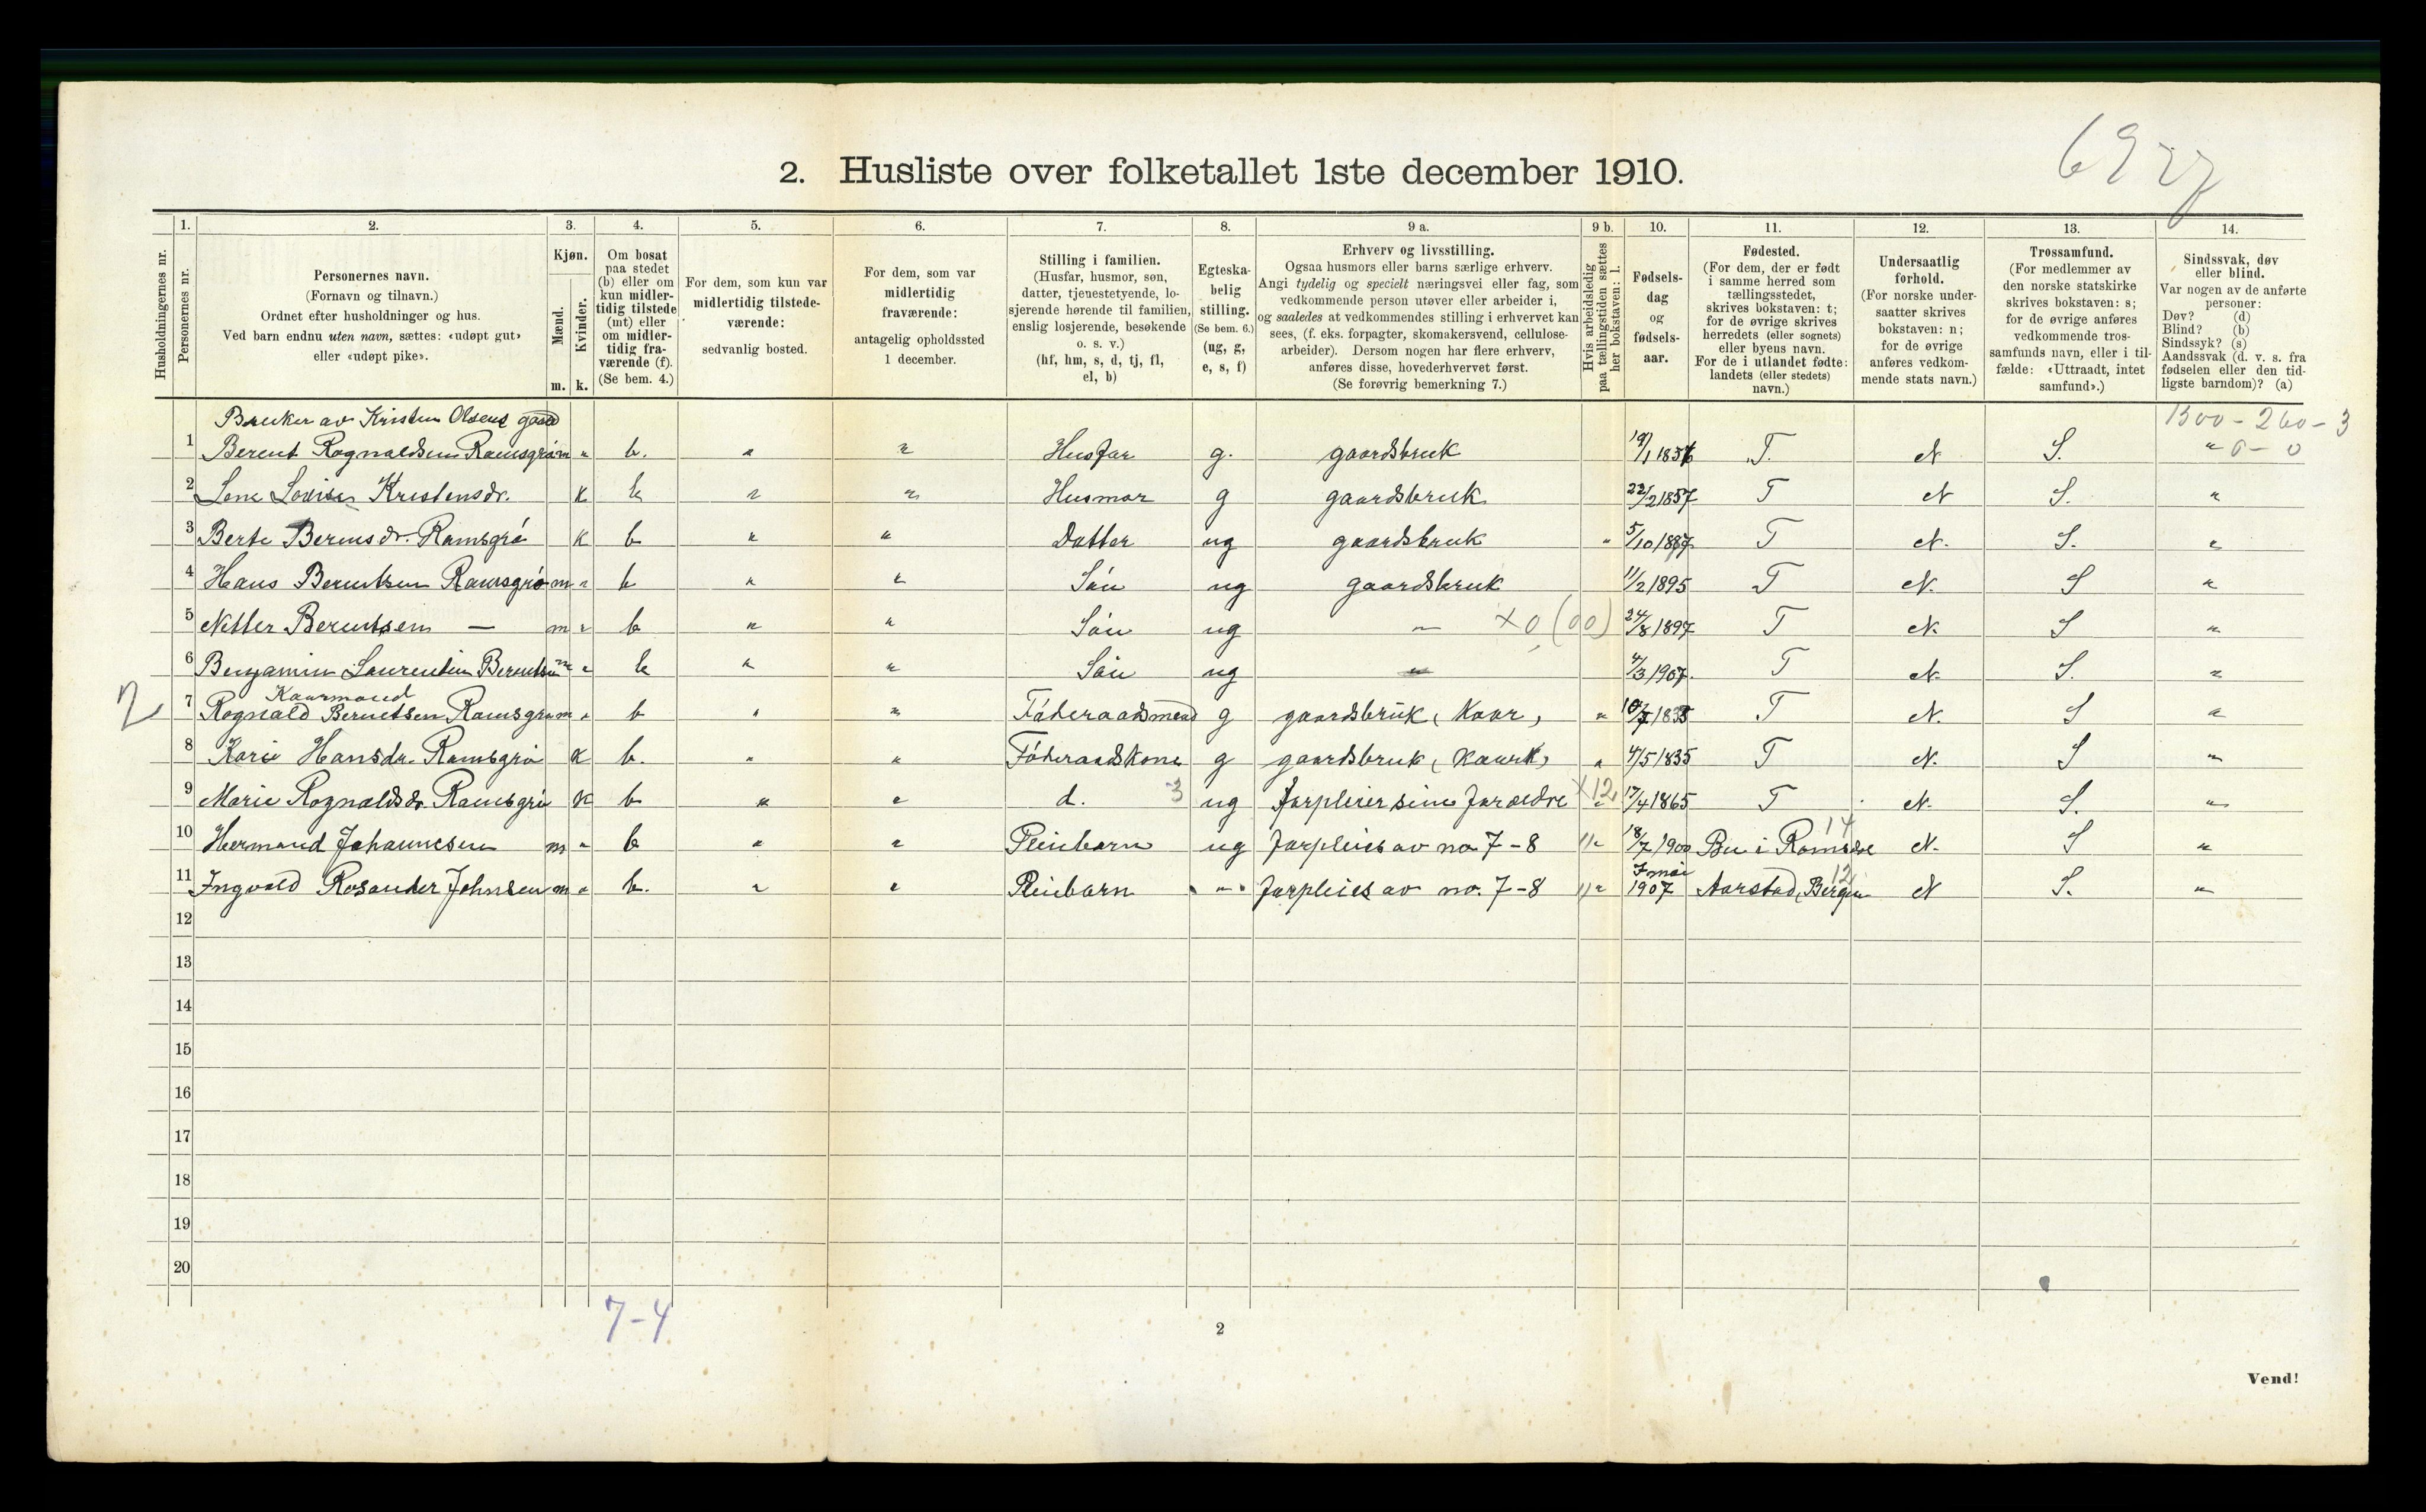 69 27
2. Husliste over folketallet 1ste december 1910.
1. 2. 3. 4. 5. 6. 7. 8. 9 a. 9 b. 10. 11. 12. 13. 14.
Husholdningernes nr.
Personernes nr.
Personernes navn.
(Fornavn og tilnavn.)
Ordnet efter husholdninger og hus.
Ved barn endnu uten navn, sættes: «udøpt gut»
eller «udøpt pike».
Kjøn.
Mænd.
Kvinder.
m. k.
Om bosat
paa stedet
(b) eller om
kun midler-
tidig tilstede
(mt) eller
om midler-
tidig fra-
værende (f).
(Se bem. 4.)
For dem, som kun var
midlertidig tilstede-
værende:
sedvanlig bosted.
For dem, som var
midlertidig
fraværende:
antagelig opholdssted
1 december.
Stilling i familien.
(Husfar, husmor, søn,
datter, tjenestetyende, lo-
sjerende hørende til familien,
enslig losjerende, besøkende
o. s. v.)
(hf, hm, s, d, tj, fl,
el, b)
Egteska-
belig
stilling.
(Se bem. 6.)
(ug, g,
e, s, f)
Erhverv og livsstilling.
Ogsaa husmors eller barns særlige erhverv.
Angi tydelig og specielt næringsvei eller fag, som
vedkommende person utøver eller arbeider i,
og saaledes at vedkommendes stilling i erhvervet kan
sees, (f. eks. forpagter, skomakersvend, cellulose-
arbeider). Dersom nogen har flere erhverv,
anføres disse, hovederhvervet først.
(Se forøvrig bemerkning 7.)
Hvis arbeidsledig
paa tællingstiden sættes
her bokstaven: l.
Fødsels-
dag
og
fødsels-
aar.
Fødested.
(For dem, der er født
i samme herred som
tællingsstedet,
skrives bokstaven: t;
for de øvrige skrives
herredets (eller sognets)
eller byens navn.
For de i utlandet fødte:
landets (eller stedets)
navn.)
Undersaatlig
forhold.
(For norske under-
saatter skrives
bokstaven: n;
for de øvrige
anføres vedkom-
mende stats navn.)
Trossamfund.
(For medlemmer av
den norske statskirke
skrives bokstaven: s;
for de øvrige anføres
vedkommende tros-
samfunds navn, eller i til-
fælde: «Uttraadt, intet
samfund».)
Sindssvak, døv
eller blind.
Var nogen av de anførte
personer:
Døv? (d)
Blind? (b)
Sindssyk? (s)
Aandssvak (d. v. s. fra
fødselen eller den tid-
ligste barndom)? (a)
Bruker av Kristen Olsens gaard 1300 - 260 - 3
1 Berent Rognaldsen Ramsgrø m " b. " " Husfar g. gaardsbruk T. N S. " 0 - 0
2 Lene Lovise Kristensdr. k b " " Husmor g gaardsbruk 22/2 1857 T N S. "
3 Berte Berensdr. Ramsgrø k b " " Datter ug gaardsbruk " 5/10 1887 T N. S. "
4 Hans Berentsen Ramsgrø m " b " " Søn ug gaardsbruk 11/2 1895 T N. S "
5 Berentsen — m " b " " Søn ug — x0 (00) 24/8 1897 T N. S "
6 Benjamin Laurentin Berentsen m " b " " Søn ug " 4/3 1907. T N. S. "
2
Kaarmand
7 Rognald Berntsen Ramsgrø m " b " " Føderaadsmand g gaardsbruk (Kaar) " T N. S "
8 Kari Hansdr. Ramsgrø k b. " " Føderaadskone g gaardsbruk (kaark) " 4/5 1835 T N. S "
9 Marie Rognaldsdr. Ramsgrø k b " " d. 3 ug forpleier sine foræidre x12 " 17/4 1865 T N. S. "
10 Hermand Johannesen m " b " " Pleiebarn ug forpleies av no 7-8 18/7 1900 Bu i Romsdal 14 N. S "
11 Ingvald Rosander Johnsen m " b. " " Pleiebarn " forpleies av no. 7-8 7 mai 1907 Aarstad, Bergen 12 N S. "
12
13
14
15
16
17
18
19
20
7-4
2
Vend!